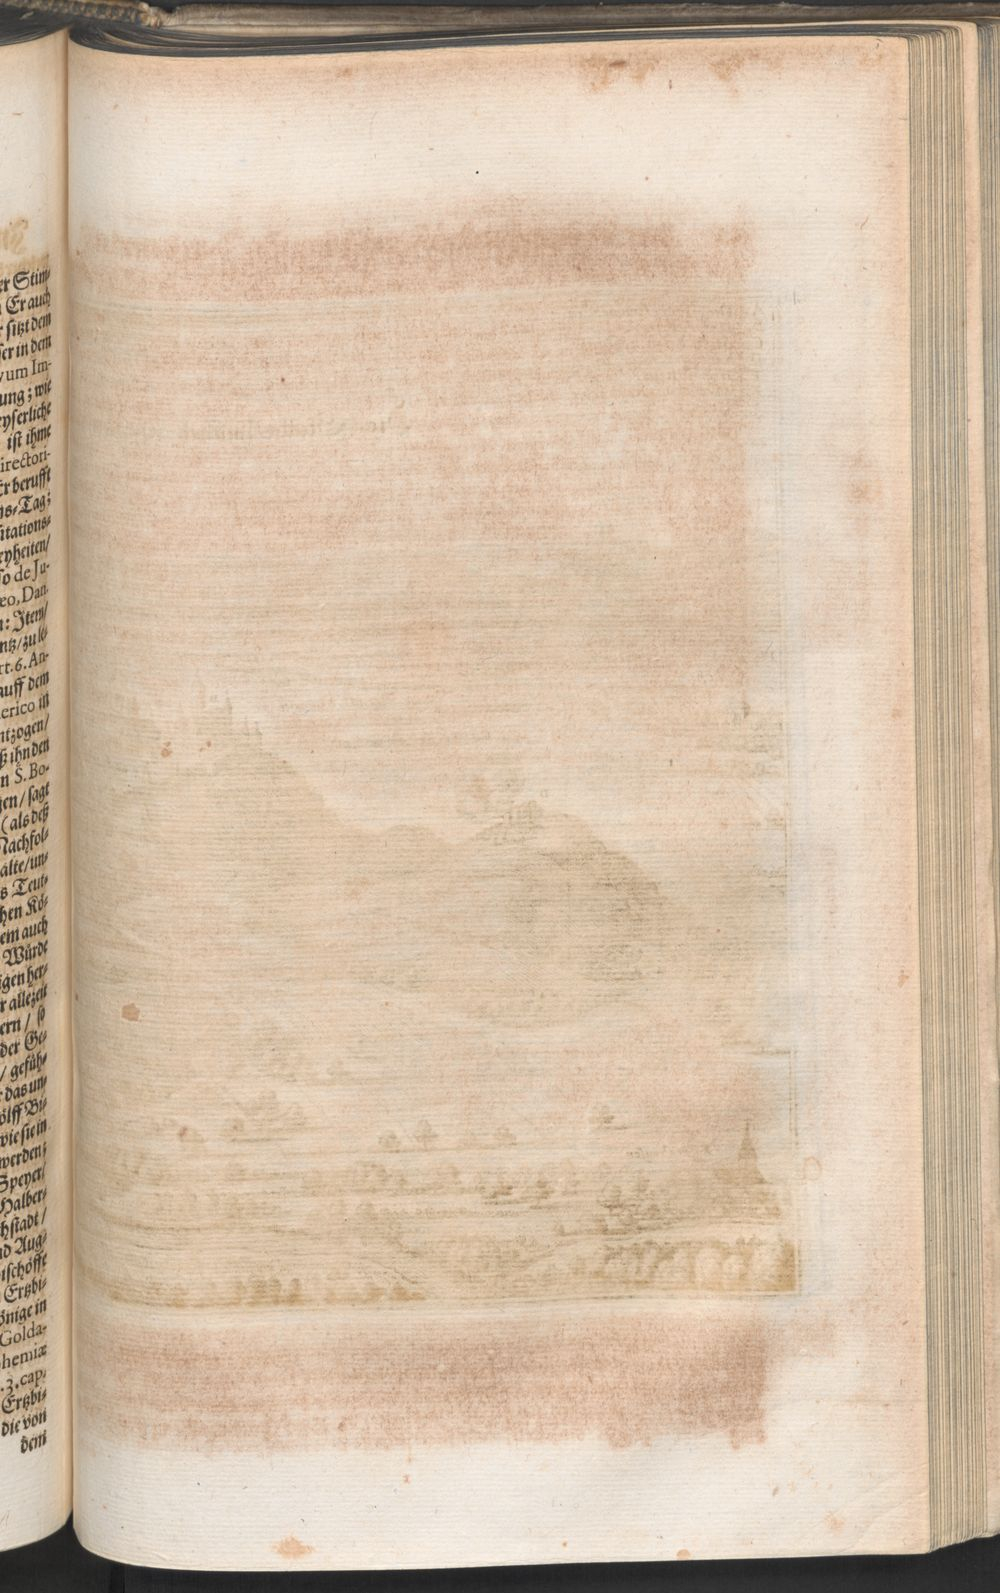 er Stim-
Er auch
r sitzt dem
ser in dem
vum Im-
ung; wie
eyserliche
ist ihme
irectori-
Er berufft
ns-Tag;
itations-
eyheiten/
so de Ju-
eo, Dan.
n: Item/
ntz/zu le-
rt. 6. An-
auff dem
erico in
ntzogen/
ß ihn den
n S. Bo-
gen/sagt
(als deß
Nachfol-
alte/un-
s Teut-
hen Kö-
em auch
Würde
igen her-
r allezeit
ern/ so
der Ge-
/ gefüh-
r das un-
ölff Bi-
wie sie in
werden;
Speyer/
Halber-
hstadt/
nd Aug-
ischöffe
Ertzbi-
önige in
Golda-
hemiæ
.3. cap.
Ertzbi-
die von
dem